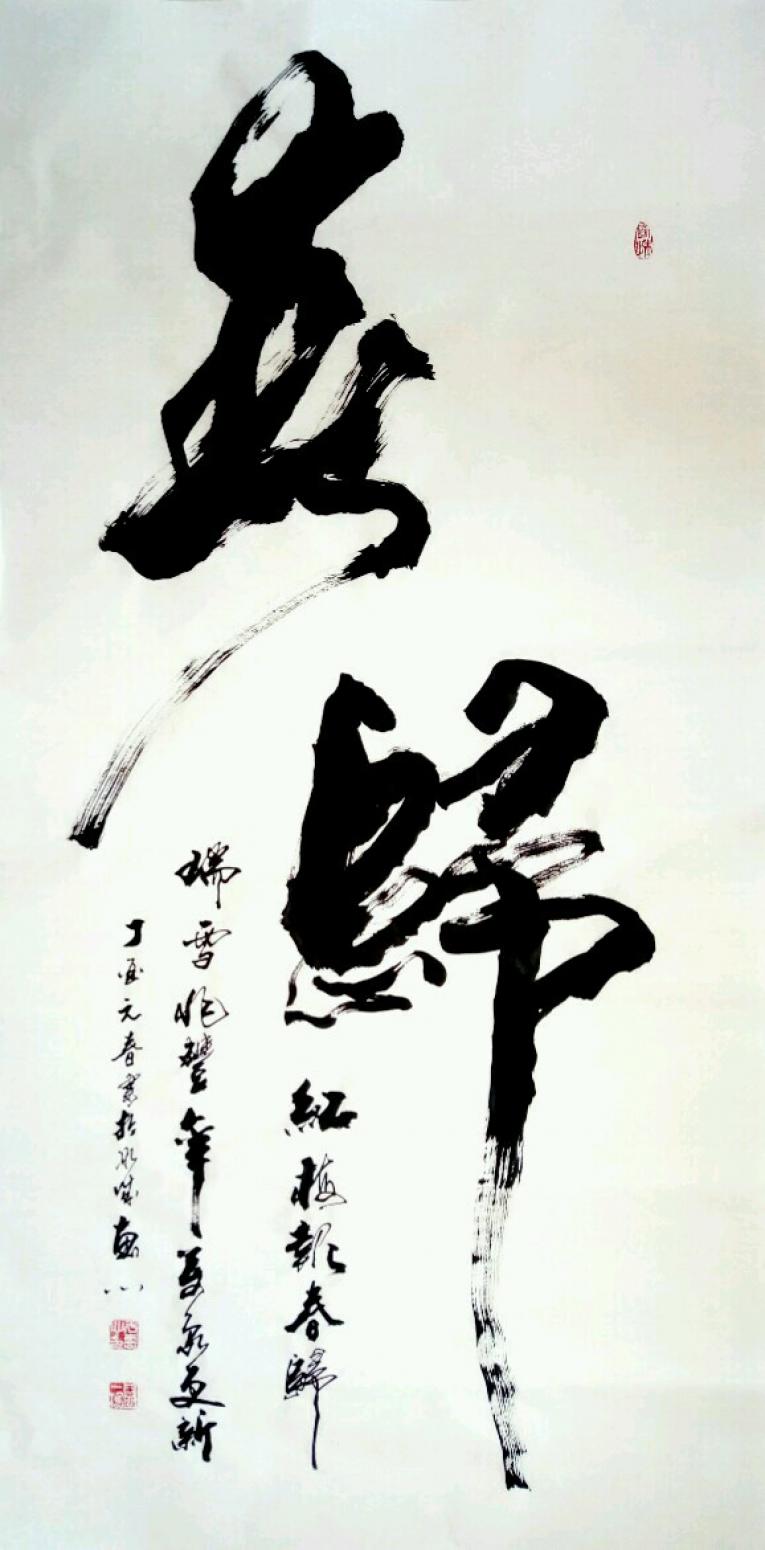 春歸
紅梅報春歸
瑞雪兆豐年萬象更新
丁酉元春書於冰城